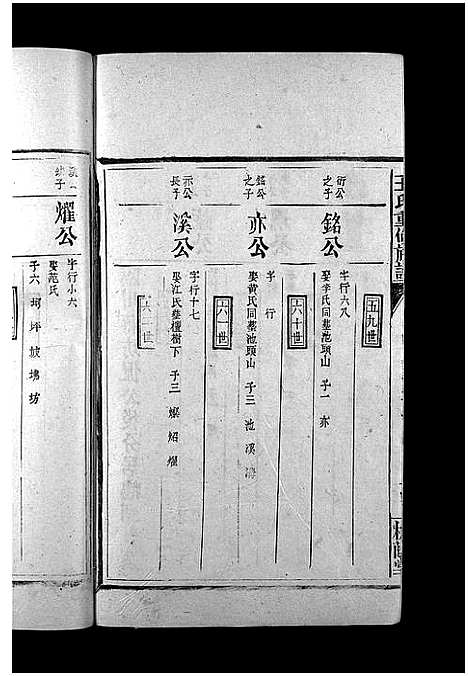 王氏重修族譜
五九世
衍公之子
銘公
字行六八
娶李氏同墓池頭山 子一 亦
六十世
銘公之子
亦公
字行
娶黄氏同墓池頭山 子三 池 溪 溝
六一世
亦公長子
溪公
字行十七
娶江氏墓檀樹下 子三 燦 炤 燿
六二世
溪公
燿公
字行小六
娶范氏
子六 坷 坪 坡 坊